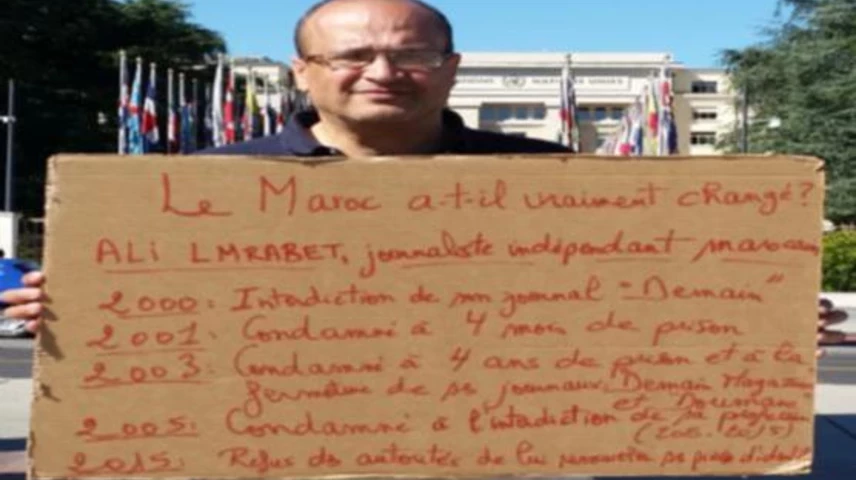 NATIONS UNIES
Le Maroc a-t-il vraiment changé?
ALi LMRABET, journaliste indépendant marocain
2000: Interdiction de son journal "Demain"
2001: Condamné à 4 mois de prison
2003: Condamné à 4 ans de prison et à la
fermeture de ses journaux: Demain Magazine
et Doumane
2005: Condamné à l'interdiction de sa profession
(2005-2015)
2015: Refus des autorités de lui